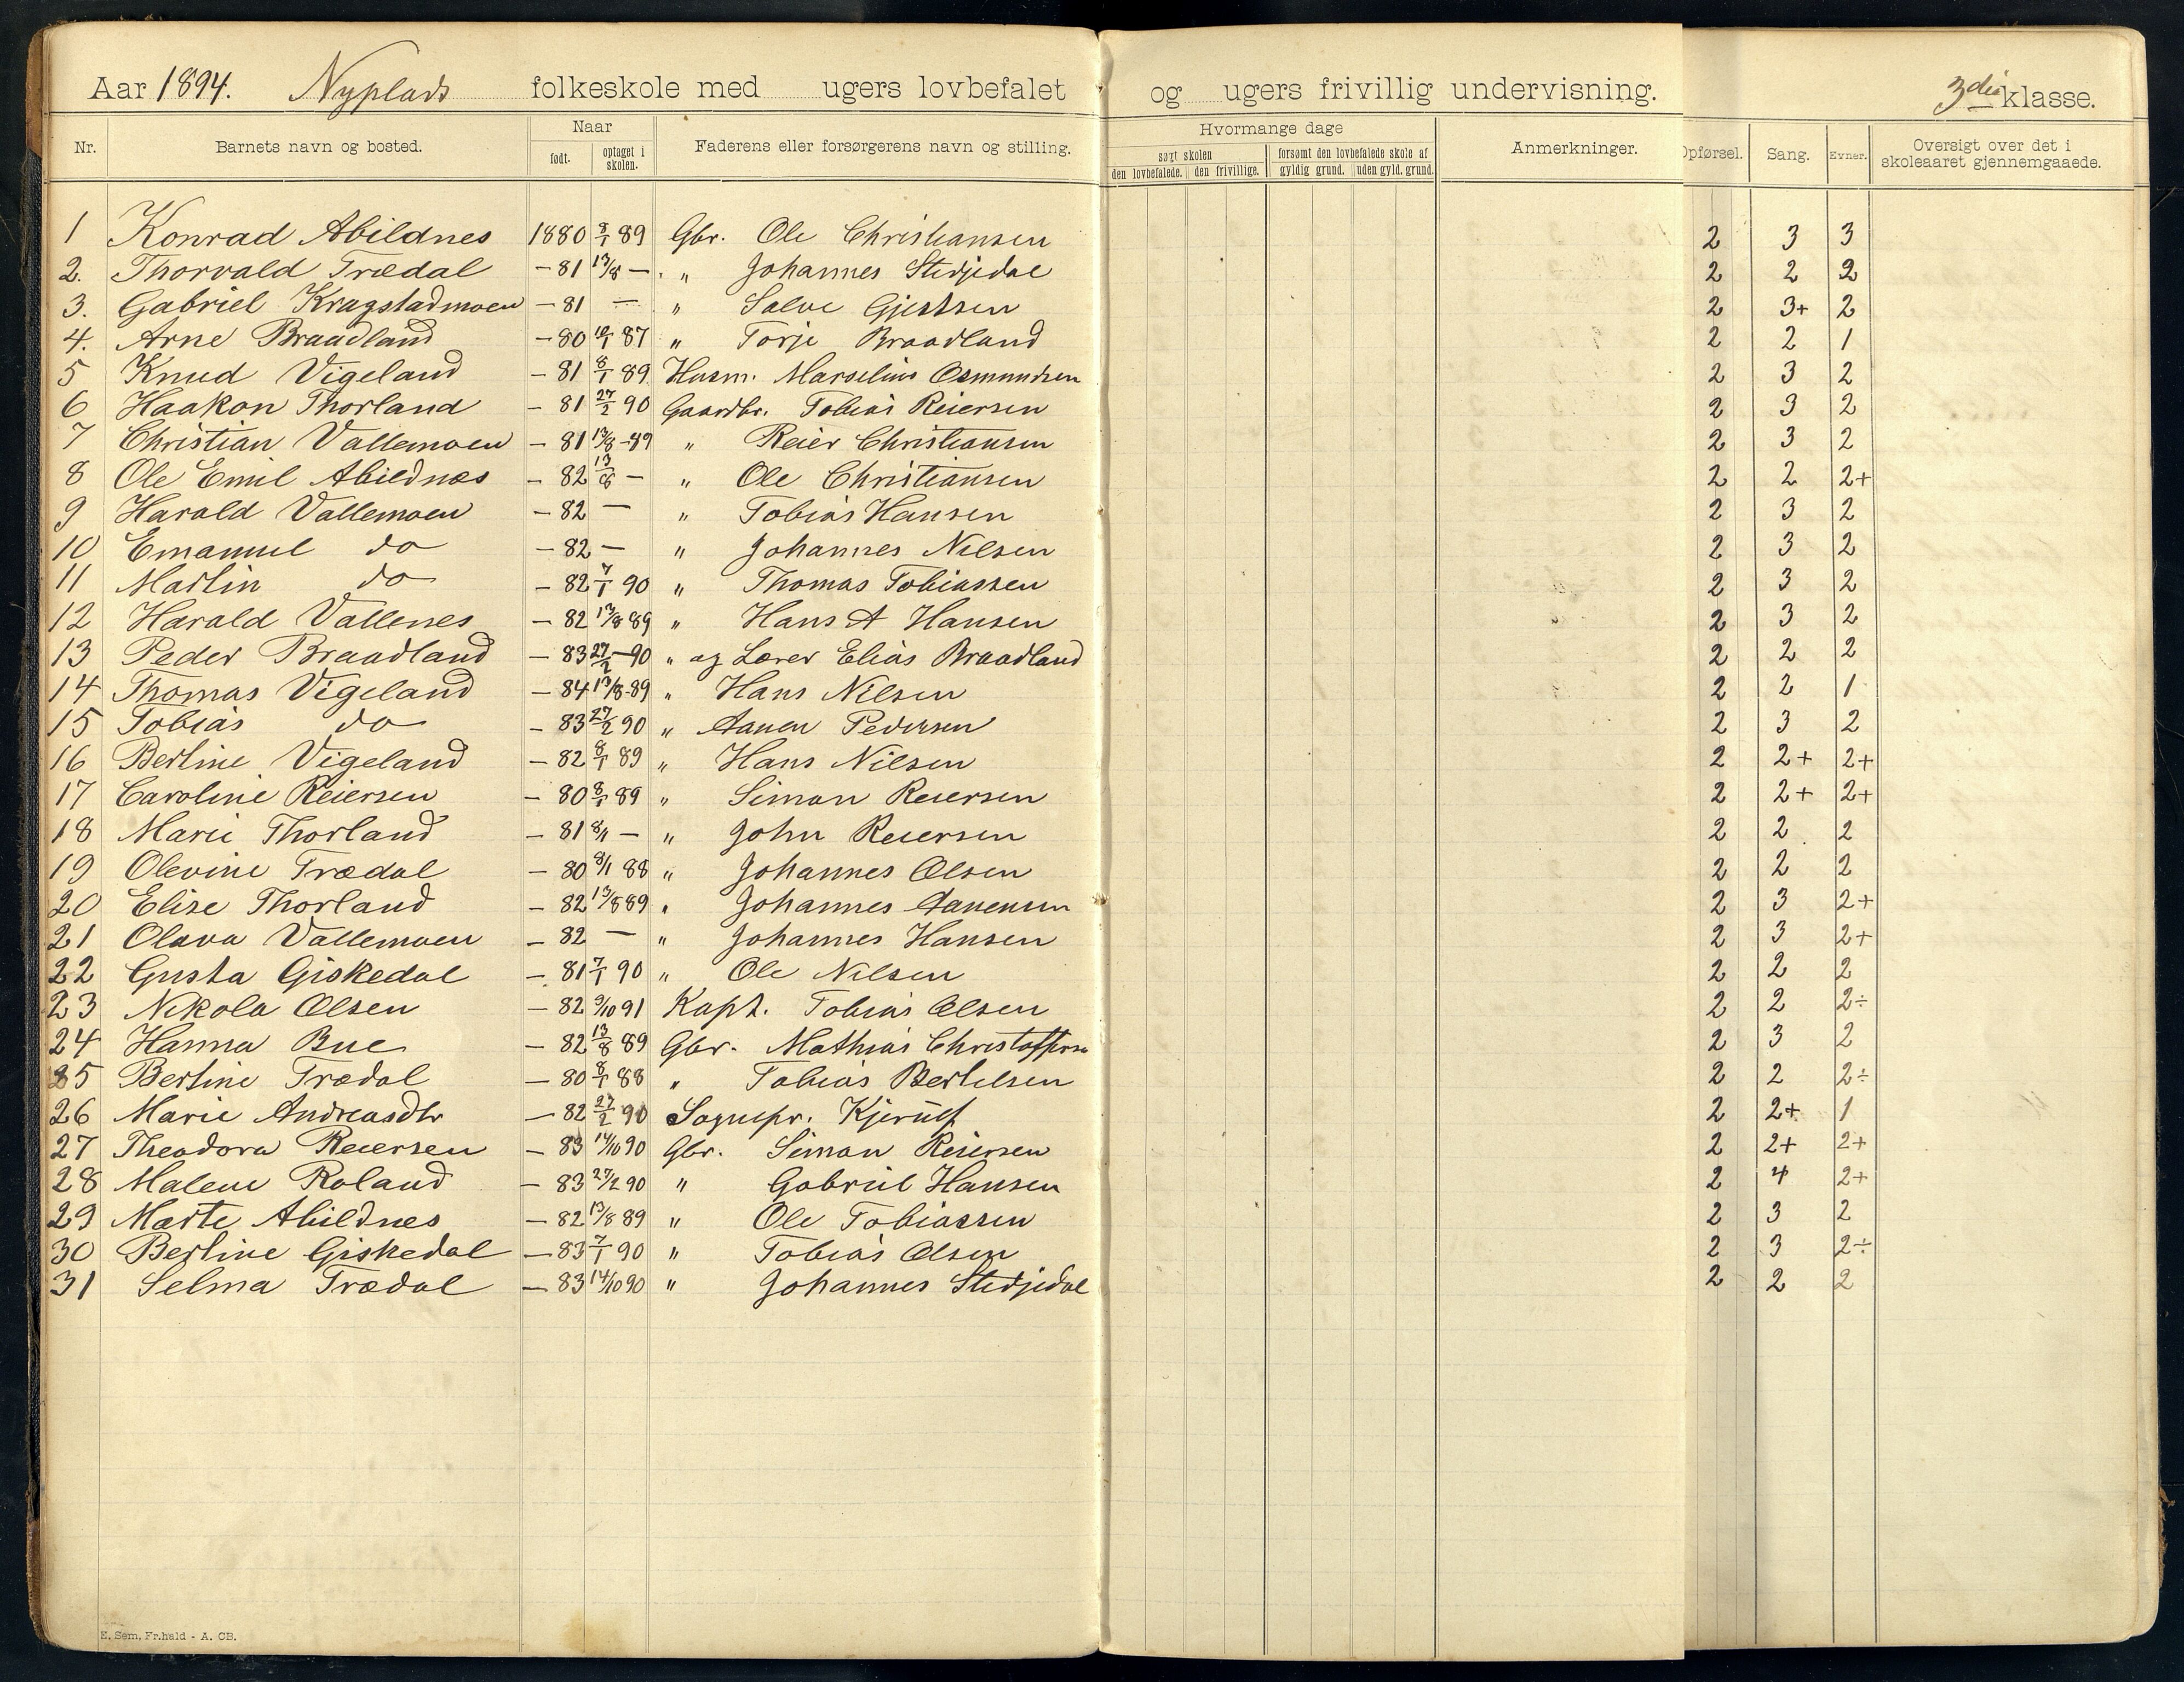 Aar 1894. Nyplads folkeskole med ugers lovbefalet og ugers frivillig undervisning. 3die klasse.
Nr. Barnets navn og bosted. Naar født. optaget i skolen. Faderens eller forsørgerens navn og stilling. Hvormange dage søgt skolen den lovbefalede. den frivillige. forsømt den lovbefalede skole af gyldig grund. uden gyld. grund. Anmerkninger. Opførsel. Sang. Evner. Oversigt over det i skoleaaret gjennemgaaede.
1 Konrad Abildnes 1880 8/1 89 Gbr. Ole Christiansen 2 3 3
2. Thorvald Trædal – 81 13/8 – " Johannes Stedjedal 2 2 2
3. Gabriel Kragstadmoen – 81 – " Salve Gjertsen 2 3+ 2
4. Arne Braadland – 80 10/1 87 " Torje Braadland 2 2 1
5 Knud Vigeland – 81 8/1 89 Husm. Marselius Osmundsen 2 3 2
6 Haakon Thorland – 81 27/2 90 Gaardbr. Tobias Reiersen 2 3 2
7 Christian Vallemoen – 81 13/8 – 89 " Reier Christiansen 2 3 2
8 Ole Emil Abildnæs – 82 13/8 – " Ole Christiansen 2 2 2+
9 Harald Vallemoen – 82 – " Tobias Hansen 2 3 2
10 Emanuel do – 82 – " Johannes Nilsen 2 3 2
11 Martin do – 82 7/1 90 " Thomas Tobiassen 2 3 2
12 Harald Vallenes – 82 13/8 89 " Hans A Hansen 2 3 2
13 Peder Braadland – 83 27/2 – 90 " og Lærer Elias Braadland 2 2 2
14 Thomas Vigeland – 84 13/8 – 89 " Hans Nilsen 2 2 1
15 Tobias do – 83 27/2 90 " Aanen Pedersen 2 3 2
16 Bertine Vigeland – 82 8/1 89 " Hans Nilsen 2 2+ 2+
17 Caroline Reiersen – 80 8/1 89 " Simon Reiersen 2 2+ 2+
18 Marie Thorland – 81 8/1 – " John Reiersen 2 2 2
19 Olevine Trædal – 80 8/1 88 " Johannes Olsen 2 2 2
20 Elise Thorland – 82 13/8 89 " Johannes Aanensen 2 3 2+
21 Olava Vallemoen – 82 – " Johannes Hansen 2 3 2+
22 Gusta Giskedal – 81 7/1 90 " Ole Nilsen 2 2 2
23 Nikola Olsen – 82 9/10 91 Kapt. Tobias Olsen 2 2 2÷
24 Hanna Bue – 82 13/8 89 Gbr. Mathias Christoffersen 2 3 2
25 Bertine Trædal – 80 8/1 88 " Tobias Bertelsen 2 2 2÷
26 Marie Andreasdtr – 82 27/2 90 Sognepr. Kjerulf 2 2+ 1
27 Theodora Reiersen – 83 14/10 90 Gbr. Simon Reiersen 2 2+ 2+
28 Malene Roland – 83 27/2 90 " Gabriel Hansen 2 4 2+
29 Marte Abildnes – 82 13/8 89 " Ole Tobiassen 2 3 2
30 Bertine Giskedal – 83 7/1 90 " Tobias Olsen 2 3 2÷
31 Selma Trædal – 83 14/10 90 " Johannes Stedjedal 2 2 2
E. Sem, Fr.hald - A. CB.